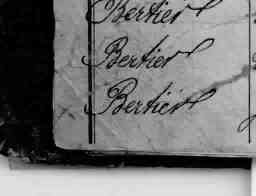 Bertier
Bertier
Bertier